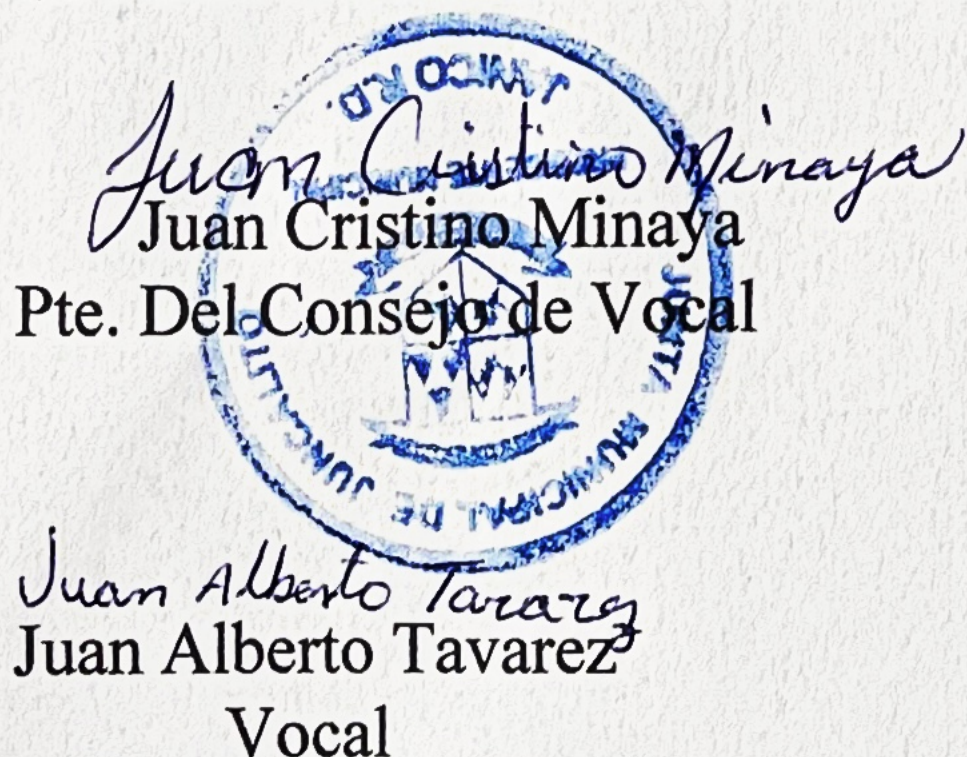 JANICO R.D.
Juan Cristino Minaya
Juan Cristino Minaya
Pte. Del Consejo de Vocal
JUNTA MUNICIPAL DE JUNCALITO
Juan Alberto Tavarez
Juan Alberto Tavarez
Vocal